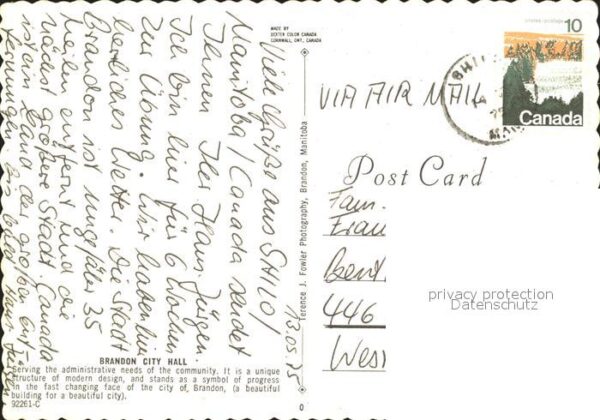 MADE BY
DEXTER COLOR CANADA
CORNWALL, ONT., CANADA
postes·postage
10
Canada
SHILO
MAN
VIA AIR MAIL
Post Card
Fam.
446
Wes
privacy protection
Datenschutz
13.05.75
Viele Grüße aus SHILO/
Manitoba/Canada sendet
Ihnen Ihr Hans-Jürgen.
Ich bin hier für 6 Wochen
zur Übung. Wir haben hier
herrliches Wetter. Die Stadt
Brandon ist ungefähr 35
Meilen entfernt und die
nächst größere Stadt. Canada
ist ein Land der großen Ent-
fernungen.
Terence J. Fowler Photography, Brandon, Manitoba
BRANDON CITY HALL
Serving the administrative needs of the community. It is a unique
structure of modern design, and stands as a symbol of progress
in the fast changing face of the city of, Brandon, (a beautiful
building for a beautiful city).
92261-C
0